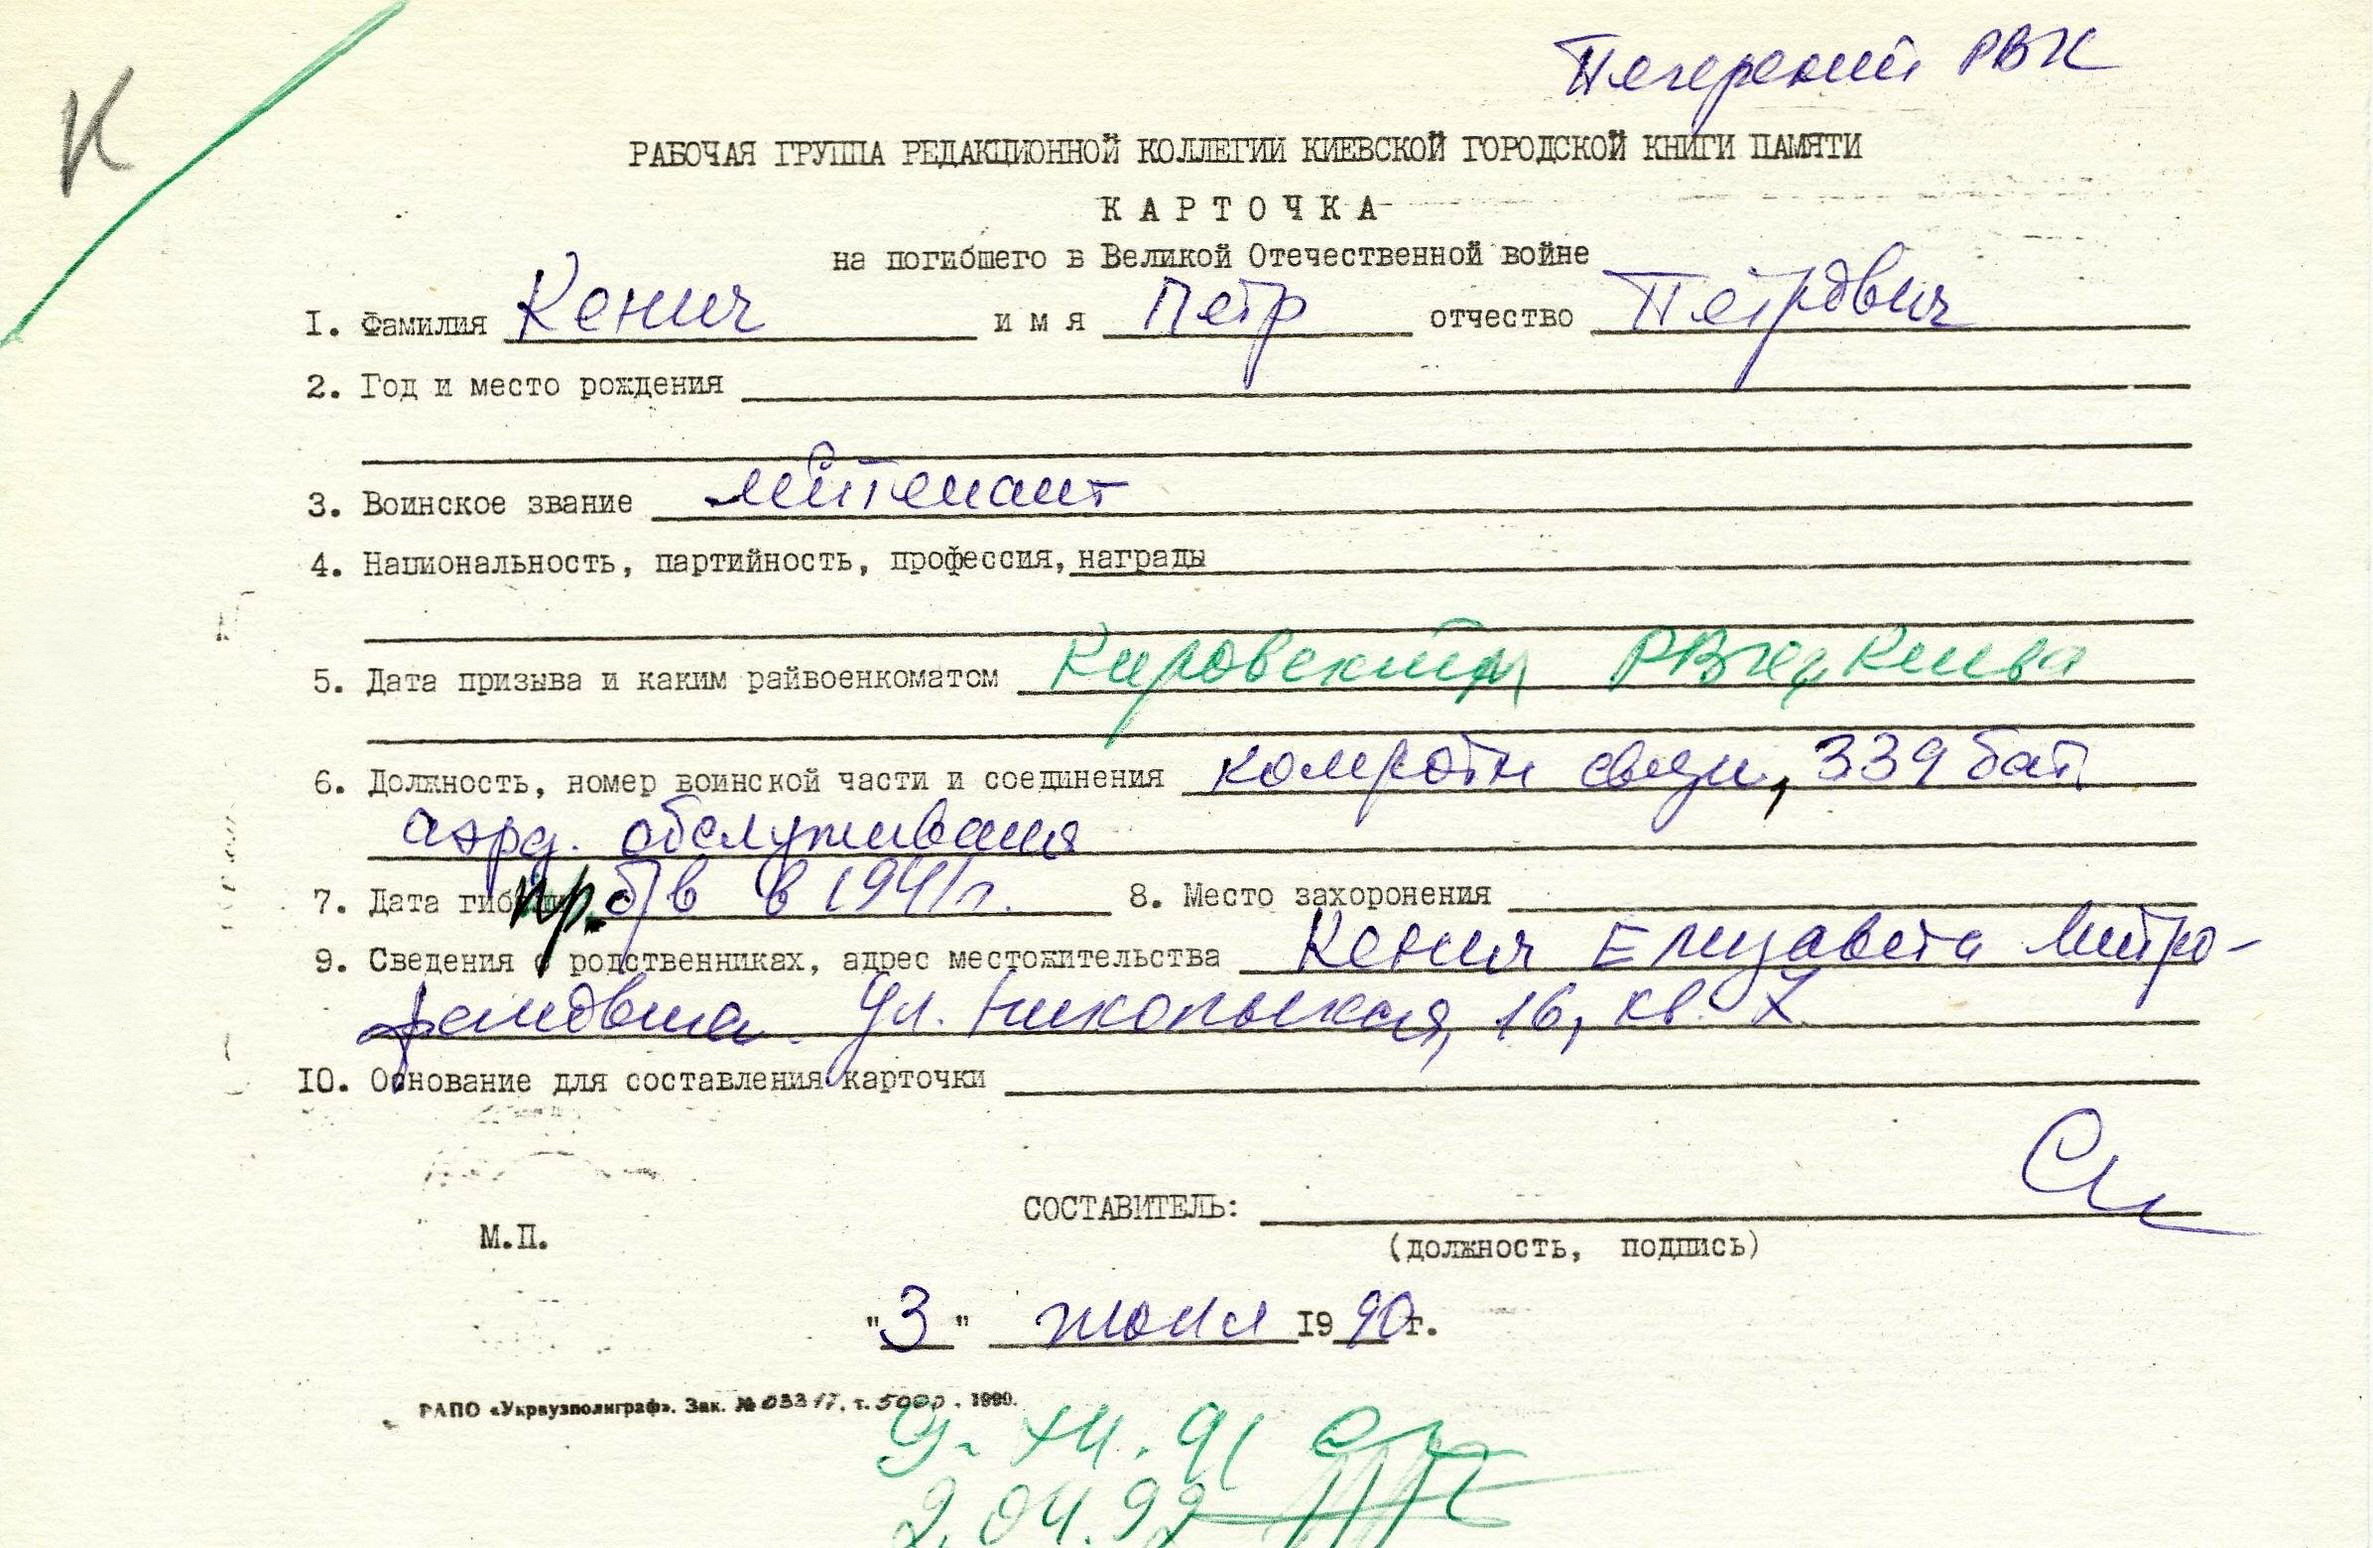 Печерский РВК
К
РАБОЧАЯ ГРУППА РЕДАКЦИОННОЙ КОЛЛЕГИИ КИЕВСКОЙ ГОРОДСКОЙ КНИГИ ПАМЯТИ
КАРТОЧКА
на погибшего в Великой Отечественной войне
I. Фамилия Кенич имя Петр отчество Петрович
2. Год и место рождения
3. Воинское звание лейтенант
4. Национальность, партийность, профессия, награды
5. Дата призыва и каким райвоенкоматом Кировским РВК г. Киева
6. Должность, номер воинской части и соединения ком.роты связи, 339 бат.
аэрд. обслуживания
7. Дата гибели пр. б/в в 1941г. 8. Место захоронения
9. Сведения о родственниках, адрес местожительства Кенич Елизавета Митро-
фановна. Ул. Никольская, 16, кв. 7.
I0. Основание для составления карточки
СОСТАВИТЕЛЬ:
М.П.
(должность, подпись)
"3" июля 1990г.
РАПО «Укрвузполиграф». Зак. № 03317. т. 5000. 1990.
9. XII. 91
2.04.92